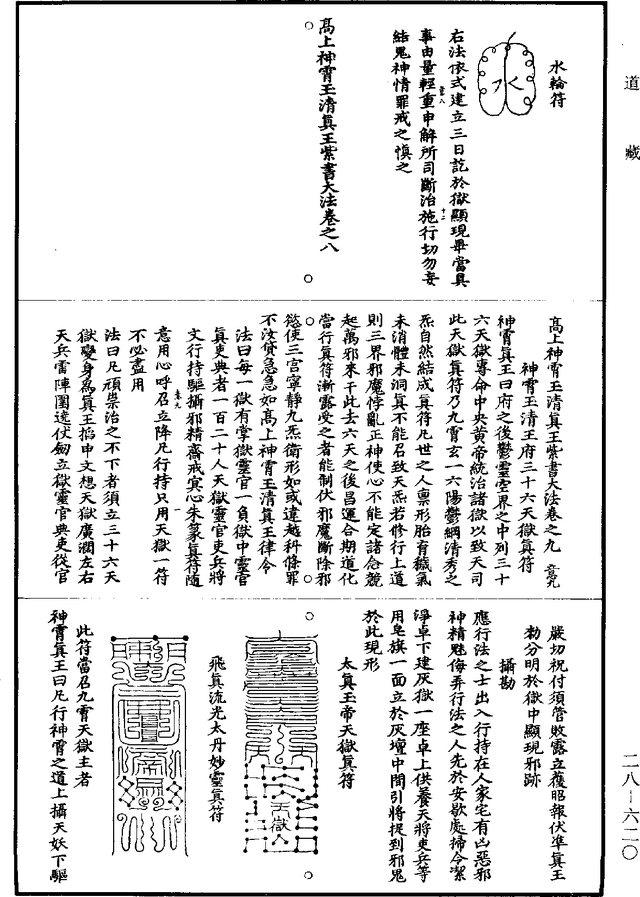 道藏
水輪符
右法依式建立三日訖於獄顯現畢當具
事由量輕重申解所司斷治施行切勿妄
結鬼神情罪戒之慎之
高上神霄玉清真王紫書大法卷之八
高上神霄玉清真王紫書大法卷之九
神霄玉清王府三十六天獄真符
神霄真王曰府之後鬱靈雲界之中列三十
六天獄專命中央黃帝統治諸獄以致天司
此天獄真符乃九霄玄一六陽鬱綱清秀之
炁自然結成真符凡世之人稟形胎育穢氣
未消體未洞真不能召致天炁若修行上道
則三界邪魔悖亂正神使心不能定諸惡競
起萬邪來干此去六天之後昌運合期道化
當行真符漸露受之者能制伏邪魔斷除邪
慾使三宮寧靜九炁衛形如或違越科條罪
不汝貸急急如高上神霄玉清真王律令
法曰每一獄有掌獄靈官一負獄中靈官
真吏典者一百二十人天獄靈官吏兵將
文行持驅攝邪精齋戒寅心朱篆真符隨
意用心呼召立降凡行持只用天獄一符
不必盡用
法曰凡頑祟治之不下者須立三十六天
獄變身為真王掐申文想天獄廣濶左右
天兵雷陣圍遶仗劒立獄靈官典吏從官
嚴切祝付須管收露立獲昭報伏準真王
勑分明於獄中顯現邪跡
攝勘
應行法之士出入行持在人家宅有凶惡邪
神精魅侮弄行法之人先於安歇處掃令潔
淨卓下建灰獄一座卓上供養天將吏兵等
用皂旗一面立於灰壇中間引將捉到邪鬼
於此現形
太真王帝天獄真符
天獄
飛真流光太丹妙靈真符
此符當召九霄天獄主者
神霄真王曰凡行神霄之道上攝天妖下驅
二八－六二〇